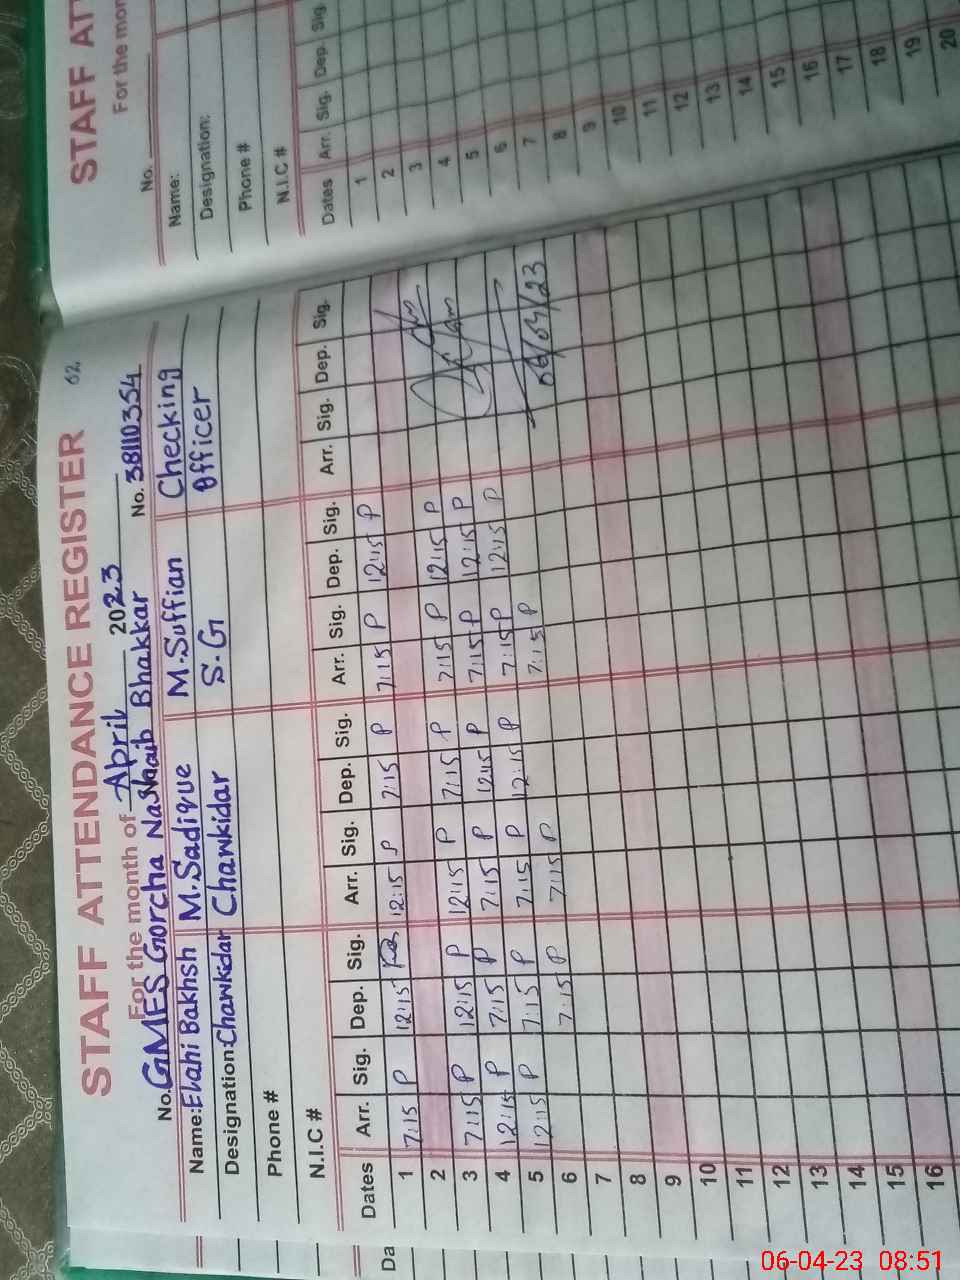 62
STAFF ATTENDANCE REGISTER
For the month of April 2023
No. GMES Gorcha Nashaib Bhakkar No. 38110354
Name: Elahi Bakhsh M. Sadique M. Suffian Checking
Designation: Chawkidar Chawkidar S.G Officer
Phone #
N.I.C #
Dates Arr. Sig. Dep. Sig. Arr. Sig. Dep. Sig. Arr. Sig. Dep. Sig. Arr. Sig. Dep. Sig.
1 7:15 P 12:15 12:15 P 7:15 P 7:15 P 12:15 P
2
3 7:15 P 12:15 P 12:15 P 7:15 P 7:15 P 12:15 P
4 12:15 P 7:15 P 7:15 P 12:15 P 7:15 P 12:15 P
5 12:15 P 7:15 P 7:15 P 12:15 P 7:15 P 12:15 P
6 7:15 P 7:15 P 7:15 P 06/04/23
7
8
9
10
11
12
13
14
15
16
Da
STAFF ATT
For the mon
No.
Name:
Designation:
Phone #
N.I.C #
Dates Arr. Sig. Dep. Sig.
1
2
3
4
5
6
7
8
9
10
11
12
13
14
15
16
17
18
19
20
06-04-23 08:51